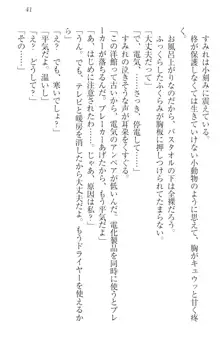 41
すみれは小刻みに震えている。
柊が保護しなくては生きていけない小動物のように思えて、胸がキュウッと甘く疼いた。
お風呂上がりなのだから、バスタオルの下は全裸だろう。
ふっくらしたふくらみが胸板に押しつけられてたまらない。
「大丈夫だって」
「で、でも、電気が……」
すみれの泣きそうな声が耳朶をくすぐる。
「この洋館って、電気のアンペアが低いんだ。電化製品を同時に使うとブレーカーが落ちるんだ。ブレーカーあげたから、もう平気だよ」
「私がはじめて使ったから……。じゃあ、原因は私？」
「うん。でも、テレビと暖房を消したから大丈夫だよ。もうドライヤーを使えるから」
「え？　でも、寒い……」
「平気だよ。温いし」
「え？」
「その……」